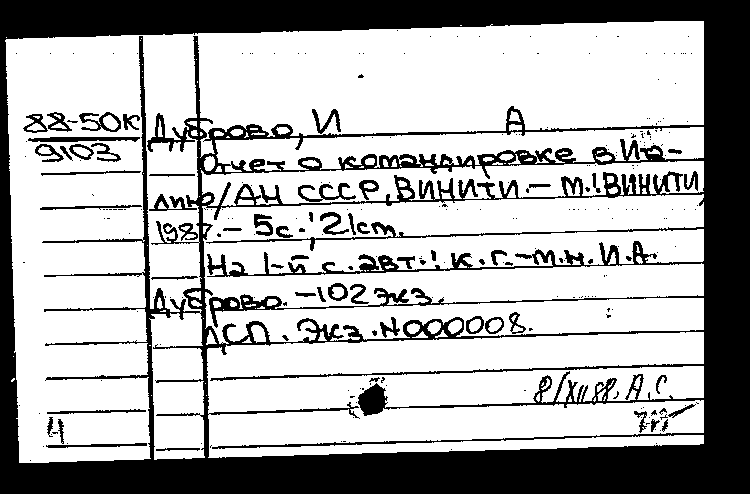 88-50К Дуброво, И А
9103 Отчет о командировке в Ита-
лию/АН СССР, ВИНИТИ.- М.: ВИНИТИ,
1987.- 5с.; 21см.
На 1-й с. авт.: к.г.-м.н. И.А.
Дуброво. -102 экз.
ДСП. Экз. N000008.
8/XII 88. А.С.
4